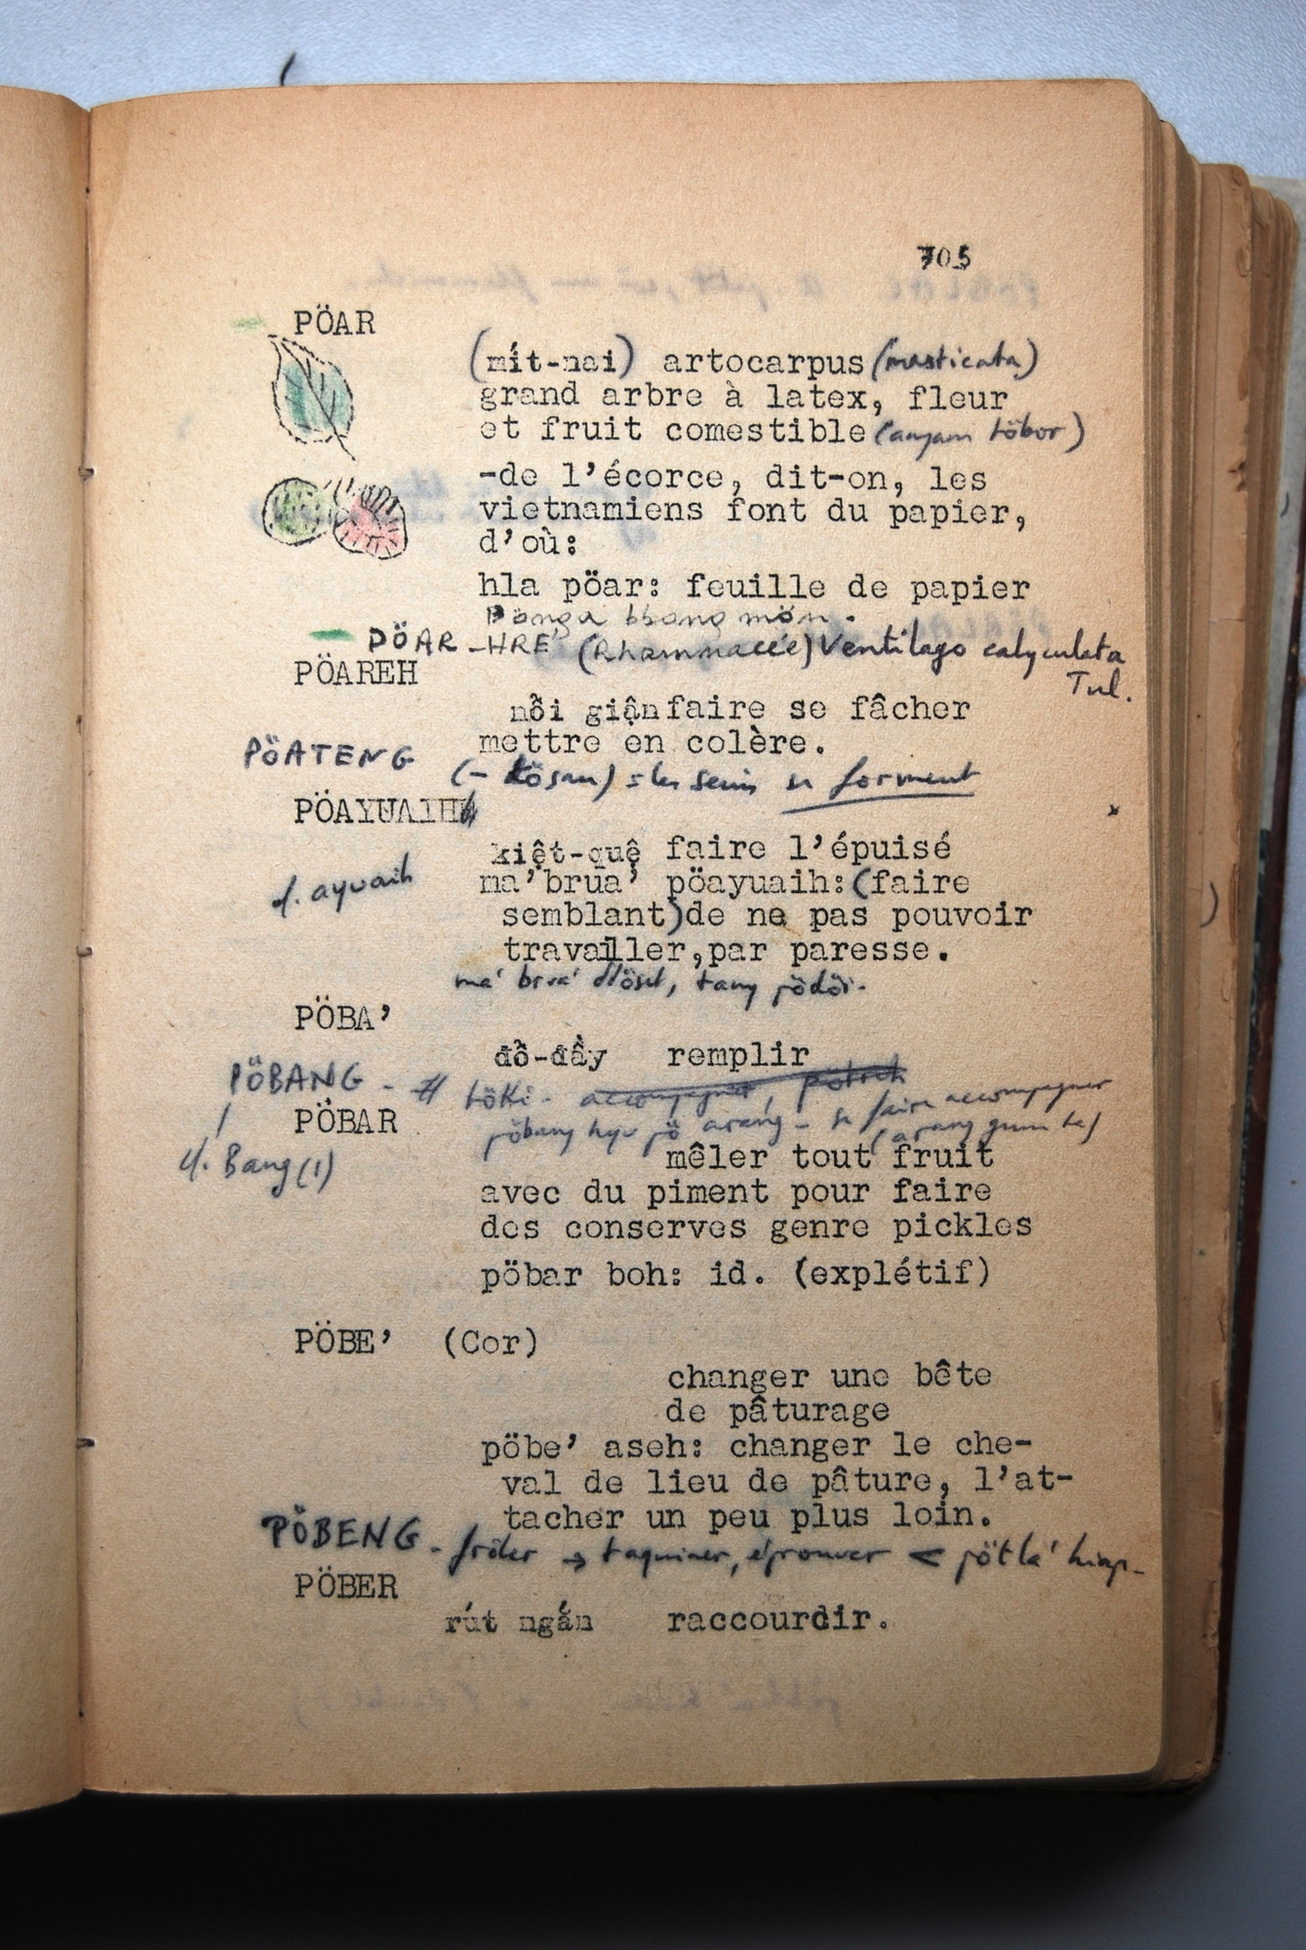 705
PÖAR
(mít-nai) artocarpus (masticata)
grand arbre à latex, fleur
et fruit comestible (anyam töbor)
-de l'écorce, dit-on, les
vietnamiens font du papier,
d'où:
hla pöar: feuille de papier
bbang mön.
PÖAR-HRE (Rhammacée) Ventilago calyculata
Tul.
PÖAREH
nồi giận faire se fâcher
mettre en colère.
PÖATENG (- tösau) = les seins se forment
PÖAYUAIH
kiệt-quệ faire l'épuisé
cf. ayuaih
ma' brua' pöayuaih: (faire
semblant) de ne pas pouvoir
travailler, par paresse.
ma' brua' tany pödöi.
PÖBA'
đồ-đầy remplir
PÖBANG - töki - accompagner,
pöbang hyu pö arang - se faire accompagner
PÖBAR
cf. Bang (1)
mêler tout fruit
avec du piment pour faire
des conserves genre pickles
pöbar boh: id. (explétif)
PÖBE' (Cor)
changer une bête
de pâturage
pöbe' aseh: changer le che-
val de lieu de pâture, l'at-
tacher un peu plus loin.
PÖBENG - frôler → taquiner, éprouver < pötla' hiap-
PÖBER
rút ngắn raccourcir.